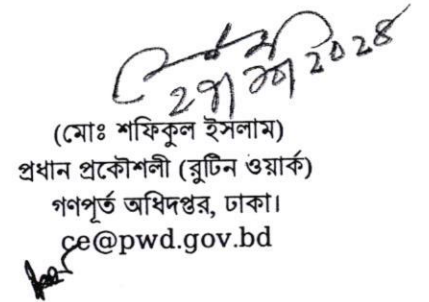 (মোঃ শফিকুল ইসলাম)
প্রধান প্রকৌশলী (রুটিন ওয়ার্ক)
গণপূর্ত অধিদপ্তর, ঢাকা।
ce@pwd.gov.bd